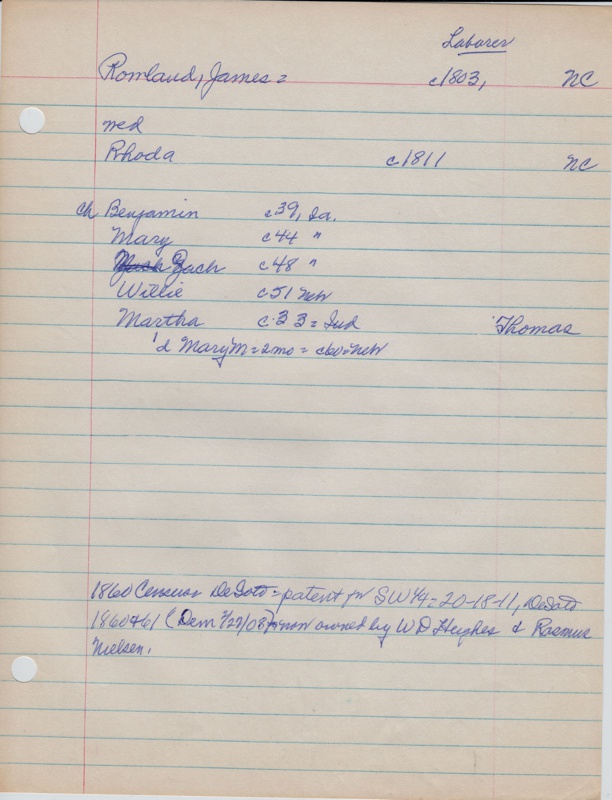 Laborer
Romland, James = c1803, NC
med
Rhoda c1811 NC
ch Benjamin c39, Ia.
Mary c44 "
Zach c48 "
Willie c51 Neb
Martha c33 = Ind Thomas
'd Mary M = 2mo = c60 = Neb
1860 Census DeSoto = patent for SW 1/4 = 20-18-11, DeSoto
1860+61 (Dem 7/27/08) = now owned by W D Hughes & Rasmus
Nielsen.